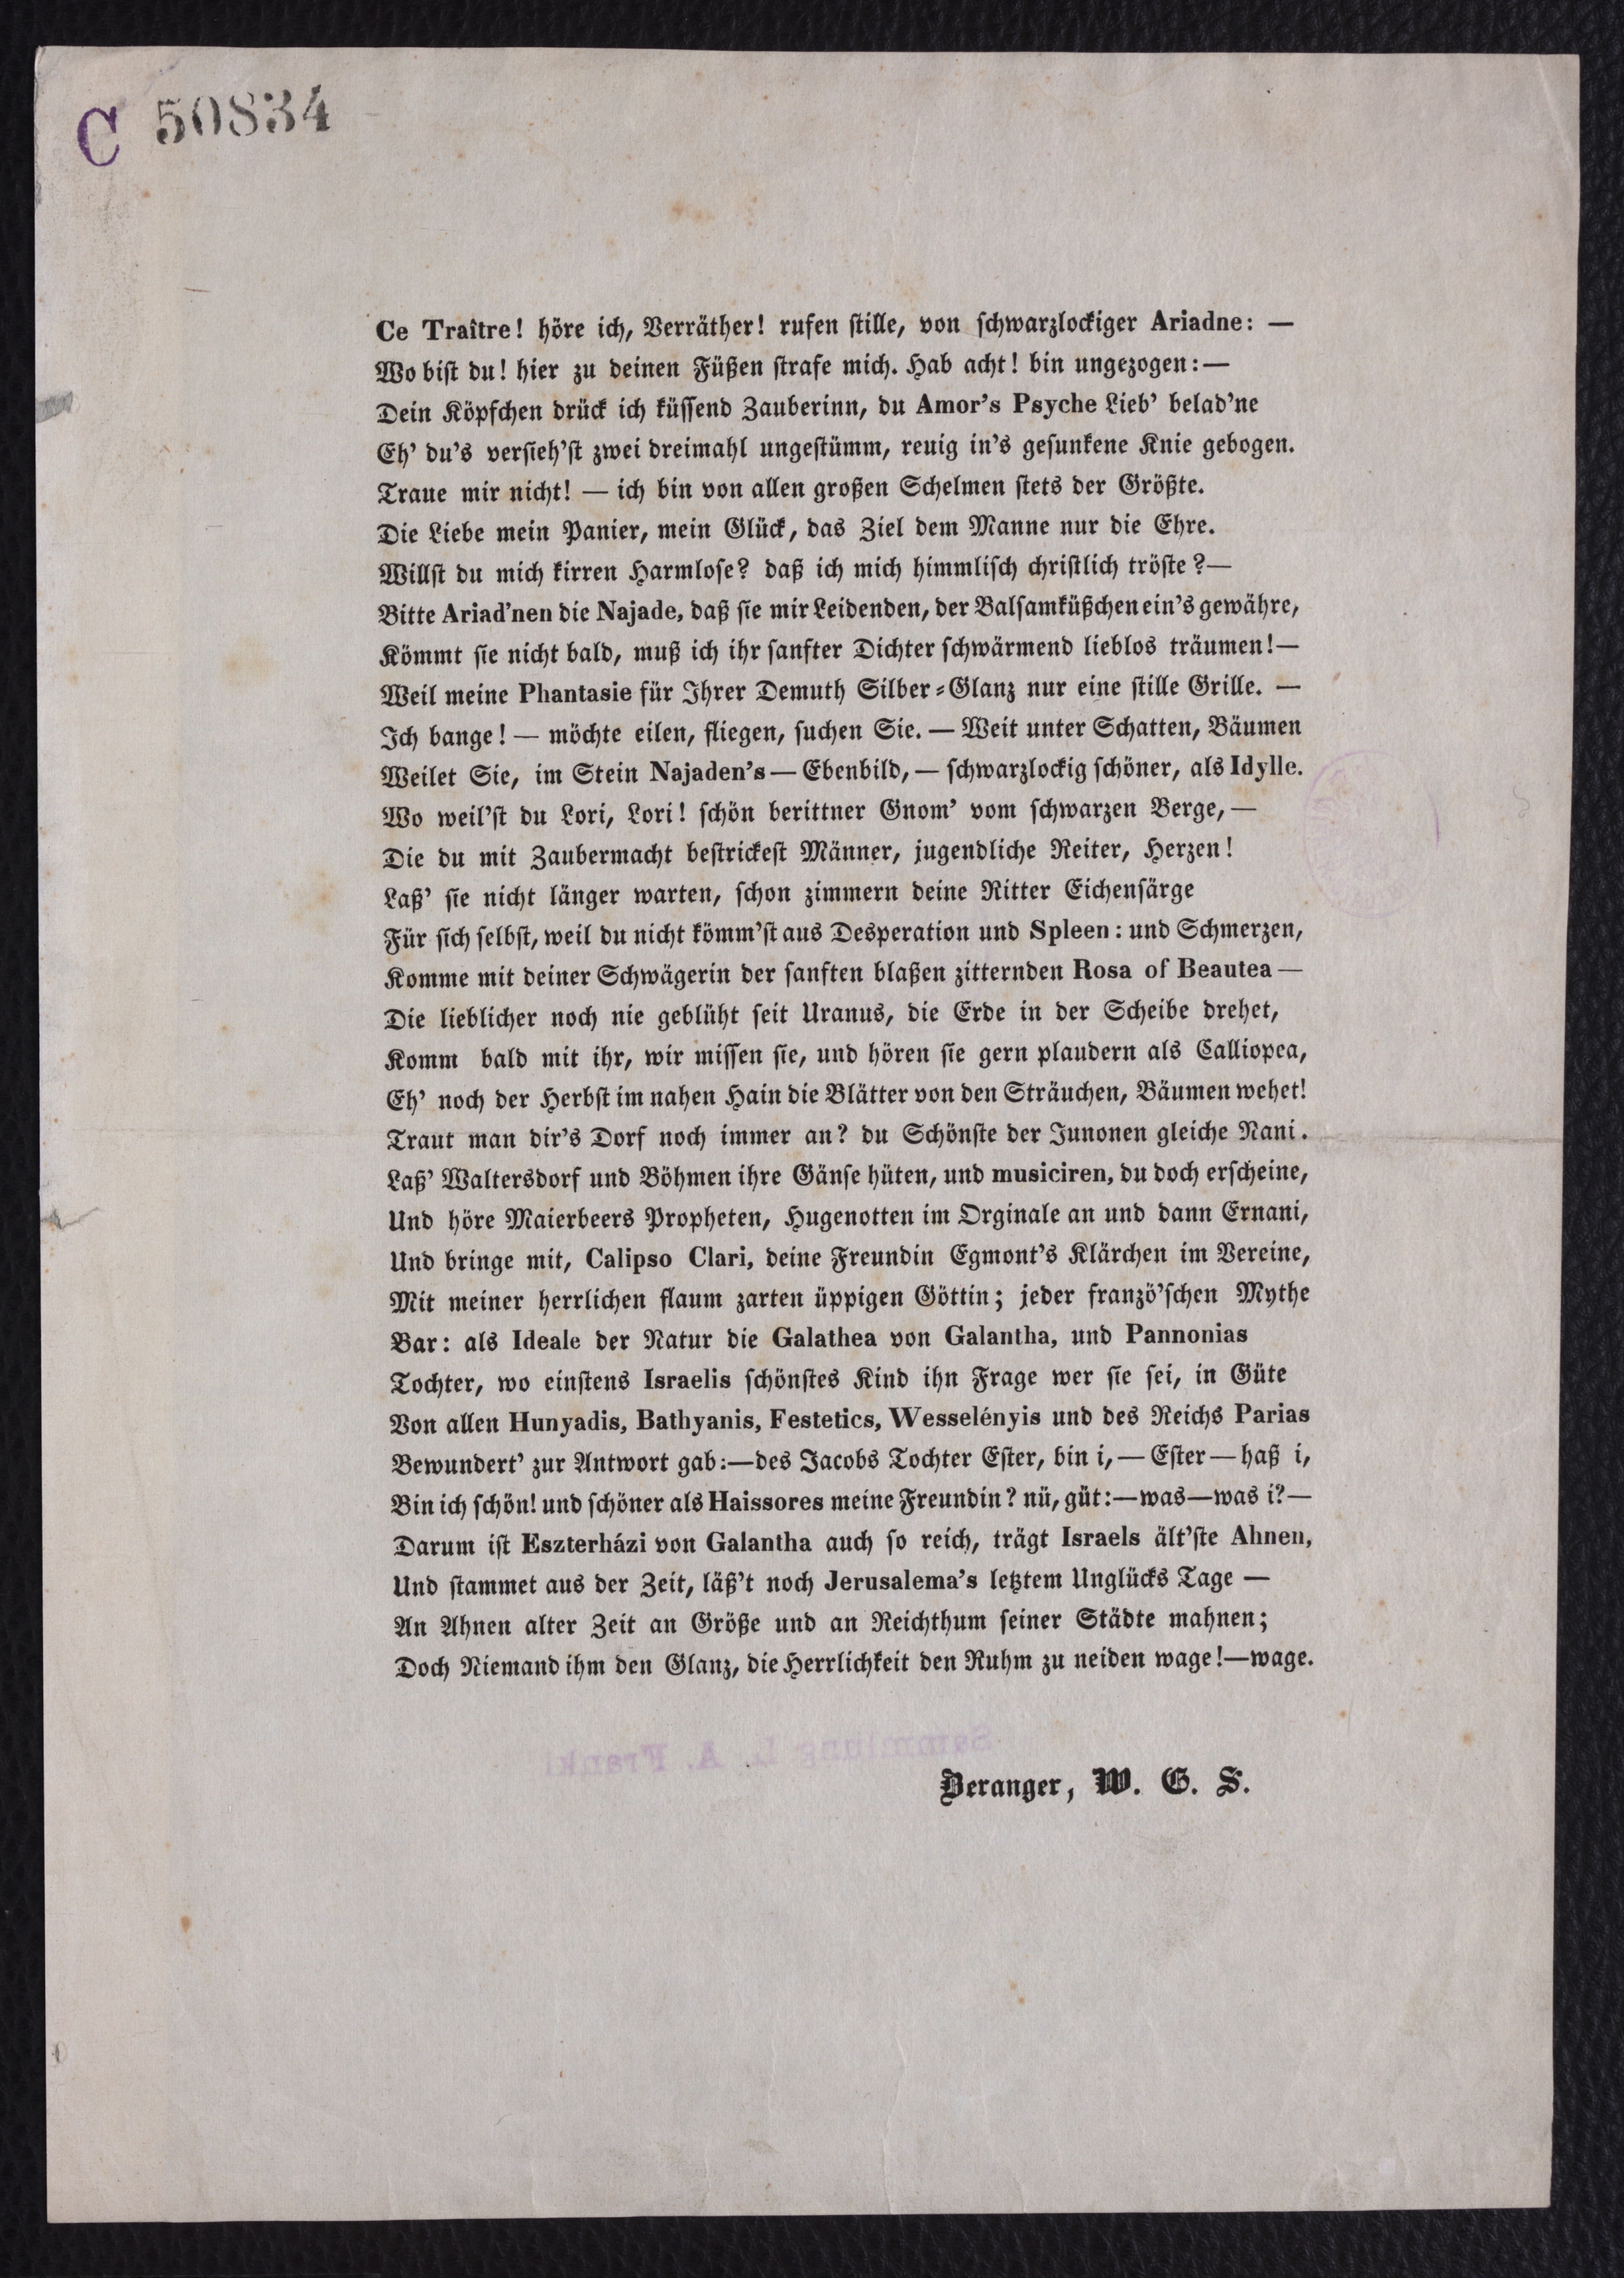 C 50834
Ce Traître! höre ich, Verräther! rufen stille, von schwarzlockiger Ariadne: —
Wo bist du! hier zu deinen Füßen strafe mich. Hab acht! bin ungezogen: —
Dein Köpfchen drück ich küssend Zauberinn, du Amor's Psyche Lieb' belad'ne
Eh' du's versieh'st zwei dreimahl ungestümm, reuig in's gesunkene Knie gebogen.
Traue mir nicht! — ich bin von allen großen Schelmen stets der Größte.
Die Liebe mein Panier, mein Glück, das Ziel dem Manne nur die Ehre.
Willst du mich kirren Harmlose? daß ich mich himmlisch christlich tröste? —
Bitte Ariad'nen die Najade, daß sie mir Leidenden, der Balsamküßchen ein's gewähre,
Kömmt sie nicht bald, muß ich ihr sanfter Dichter schwärmend lieblos träumen! —
Weil meine Phantasie für Ihrer Demuth Silber-Glanz nur eine stille Grille. —
Ich bange! — möchte eilen, fliegen, suchen Sie. — Weit unter Schatten, Bäumen
Weilet Sie, im Stein Najaden's — Ebenbild, — schwarzlockig schöner, als Idylle.
Wo weil'st du Lori, Lori! schön berittner Gnom' vom schwarzen Berge, —
Die du mit Zaubermacht bestrickest Männer, jugendliche Reiter, Herzen!
Laß' sie nicht länger warten, schon zimmern deine Ritter Eichensärge
Für sich selbst, weil du nicht kömm'st aus Desperation und Spleen: und Schmerzen,
Komme mit deiner Schwägerin der sanften blaßen zitternden Rosa of Beautea —
Die lieblicher noch nie geblüht seit Uranus, die Erde in der Scheibe drehet,
Komm bald mit ihr, wir missen sie, und hören sie gern plaudern als Calliopea,
Eh' noch der Herbst im nahen Hain die Blätter von den Sträuchen, Bäumen wehet!
Traut man dir's Dorf noch immer an? du Schönste der Junonen gleiche Nani.
Laß' Waltersdorf und Böhmen ihre Gänse hüten, und musiciren, du doch erscheine,
Und höre Maierbeers Propheten, Hugenotten im Orginale an und dann Ernani,
Und bringe mit, Calipso Clari, deine Freundin Egmont's Klärchen im Vereine,
Mit meiner herrlichen flaum zarten üppigen Göttin; jeder franzö'schen Mythe
Bar: als Ideale der Natur die Galathea von Galantha, und Pannonias
Tochter, wo einstens Israelis schönstes Kind ihn Frage wer sie sei, in Güte
Von allen Hunyadis, Bathyanis, Festetics, Wesselényis und des Reichs Parias
Bewundert' zur Antwort gab: — des Jacobs Tochter Ester, bin i, — Ester — haß i,
Bin ich schön! und schöner als Haissores meine Freundin? nü, güt: — was — was i? —
Darum ist Eszterházi von Galantha auch so reich, trägt Israels ält'ste Ahnen,
Und stammet aus der Zeit, läß't noch Jerusalema's letztem Unglücks Tage —
An Ahnen alter Zeit an Größe und an Reichthum seiner Städte mahnen;
Doch Niemand ihm den Glanz, die Herrlichkeit den Ruhm zu neiden wage! — wage.
Sammlung L. A. Frankl
Beranger, W. G. S.